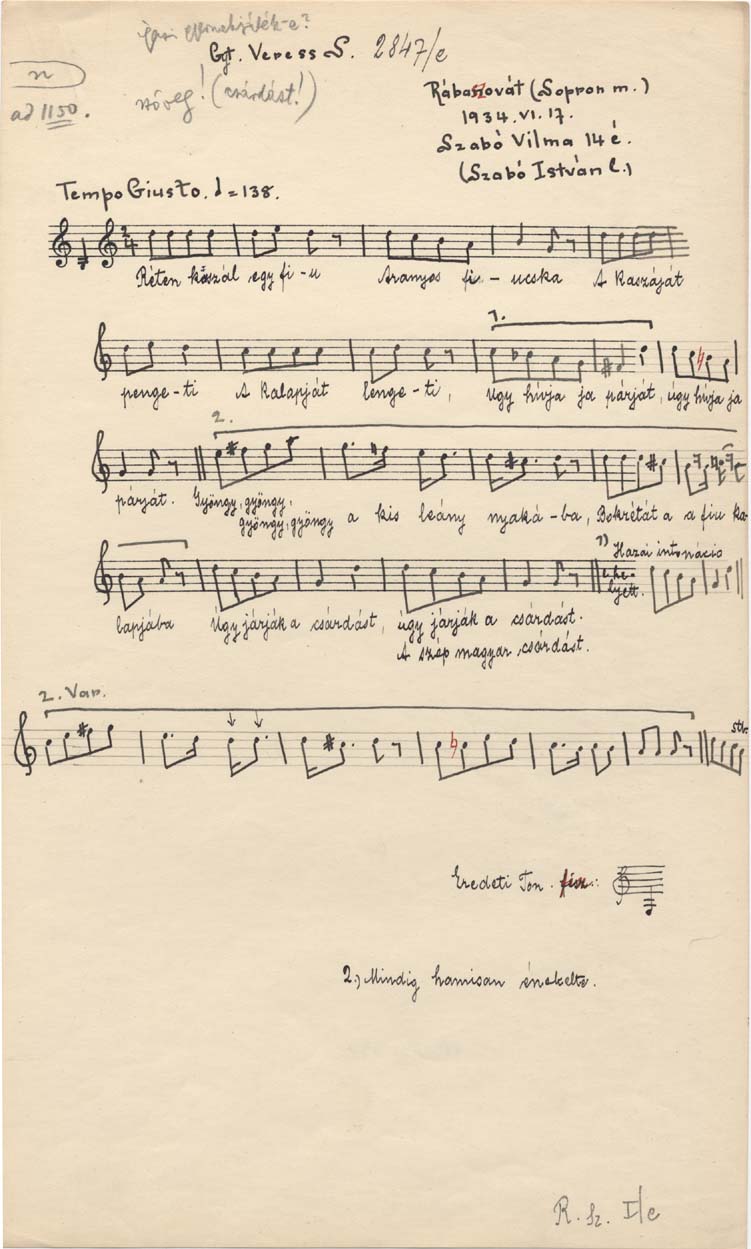 Igazi gyermekjáték-e?
Ggt. Veress S. 2847/e
n
ad 1150.
szöveg! (csárdást!)
Rábaszovát (Sopron m.)
1934. VI. 17.
Szabó Vilma 14 é.
(Szabó István l.)
Tempo Giusto. = 138.
2/4
Réten kaszál egy fi-u Aranyos fi-ucska A kaszáját
1.
penge-ti A kalapját lenge-ti, úgy hívja ja párját, úgy hívja ja
2.
párját. Gyöngy, gyöngy,
gyöngy, gyöngy a kis leány nyaká-ba, Bokrétát a a fiu ka-
1) Hazai intonáció
helyett.
lapjába Úgy járják a csárdást, úgy járják a csárdást.
A szép magyar csárdást.
2. Var.
stb.
Eredeti Ton. fisz:
2.) Mindig hamisan énekelte.
R. sz. I/c